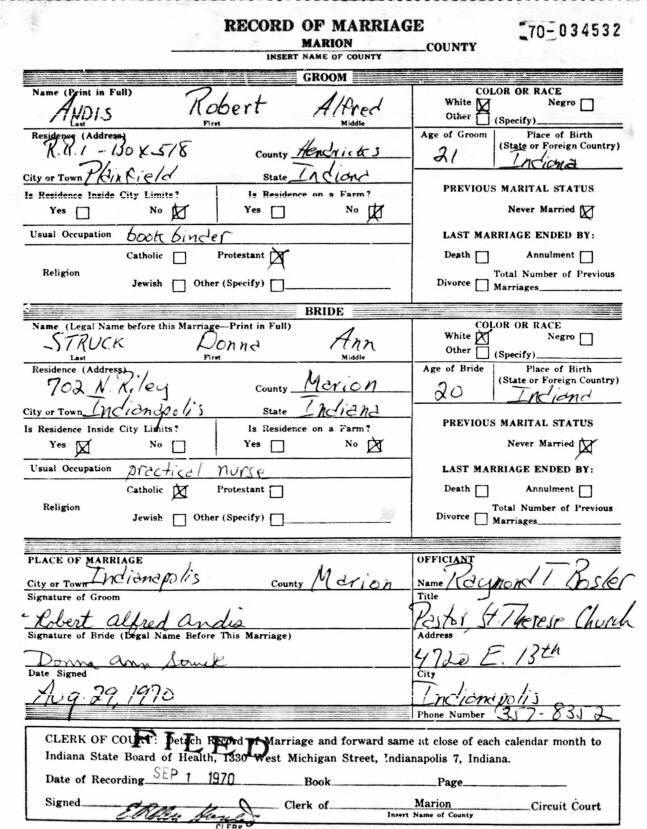 RECORD OF MARRIAGE
70-034532
MARION COUNTY
INSERT NAME OF COUNTY
GROOM
Name (Print in Full)
ANDIS Robert Alfred
Last First Middle
COLOR OR RACE
White Negro
Other (Specify)
Residence (Address)
R.R.1 - BOX 518 County Hendricks
City or Town Plainfield State Indiana
Age of Groom Place of Birth
(State or Foreign Country)
21 Indiana
Is Residence Inside City Limits? Is Residence on a Farm?
Yes No Yes No
PREVIOUS MARITAL STATUS
Never Married
Usual Occupation book binder
LAST MARRIAGE ENDED BY:
Catholic Protestant
Religion
Jewish Other (Specify)
Death Annulment
Total Number of Previous
Divorce Marriages
BRIDE
Name (Legal Name before this Marriage—Print in Full)
STRUCK Donna Ann
Last First Middle
COLOR OR RACE
White Negro
Other (Specify)
Residence (Address)
702 N. Riley County Marion
City or Town Indianapolis State Indiana
Age of Bride Place of Birth
(State or Foreign Country)
20 Indiana
Is Residence Inside City Limits? Is Residence on a Farm?
Yes No Yes No
PREVIOUS MARITAL STATUS
Never Married
Usual Occupation practical nurse
LAST MARRIAGE ENDED BY:
Catholic Protestant
Religion
Jewish Other (Specify)
Death Annulment
Total Number of Previous
Divorce Marriages
PLACE OF MARRIAGE
City or Town Indianapolis County Marion
Signature of Groom
Robert Alfred Andis
Signature of Bride (Legal Name Before This Marriage)
Donna Ann Struck
Date Signed
Aug. 29, 1970
OFFICIANT
Name Raymond T. Bosler
Title
Pastor, St. Therese Church
Address
4720 E. 13th
City
Indianapolis
Phone Number 357-8352
CLERK OF COURT: Detach Record of Marriage and forward same at close of each calendar month to
FILED
Indiana State Board of Health, 1330 West Michigan Street, Indianapolis 7, Indiana.
Date of Recording SEP 1 1970 Book Page
Signed Clerk of Marion Circuit Court
CLERK Insert Name of County